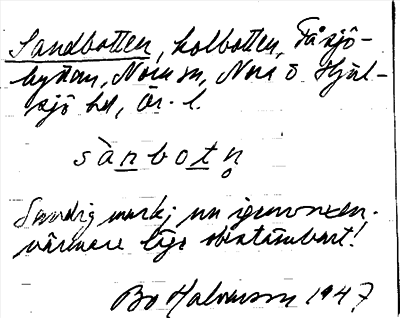 Sandbotten, kolbotten, Fåsjö-
hyttan, Nora sn, Nora o Hjul-
sjö hd, Ör. l.
sànbotn̥
Sandig mark; nu igenvuxen.
närmare läge obestämbart!
Bo Halvarson 1947